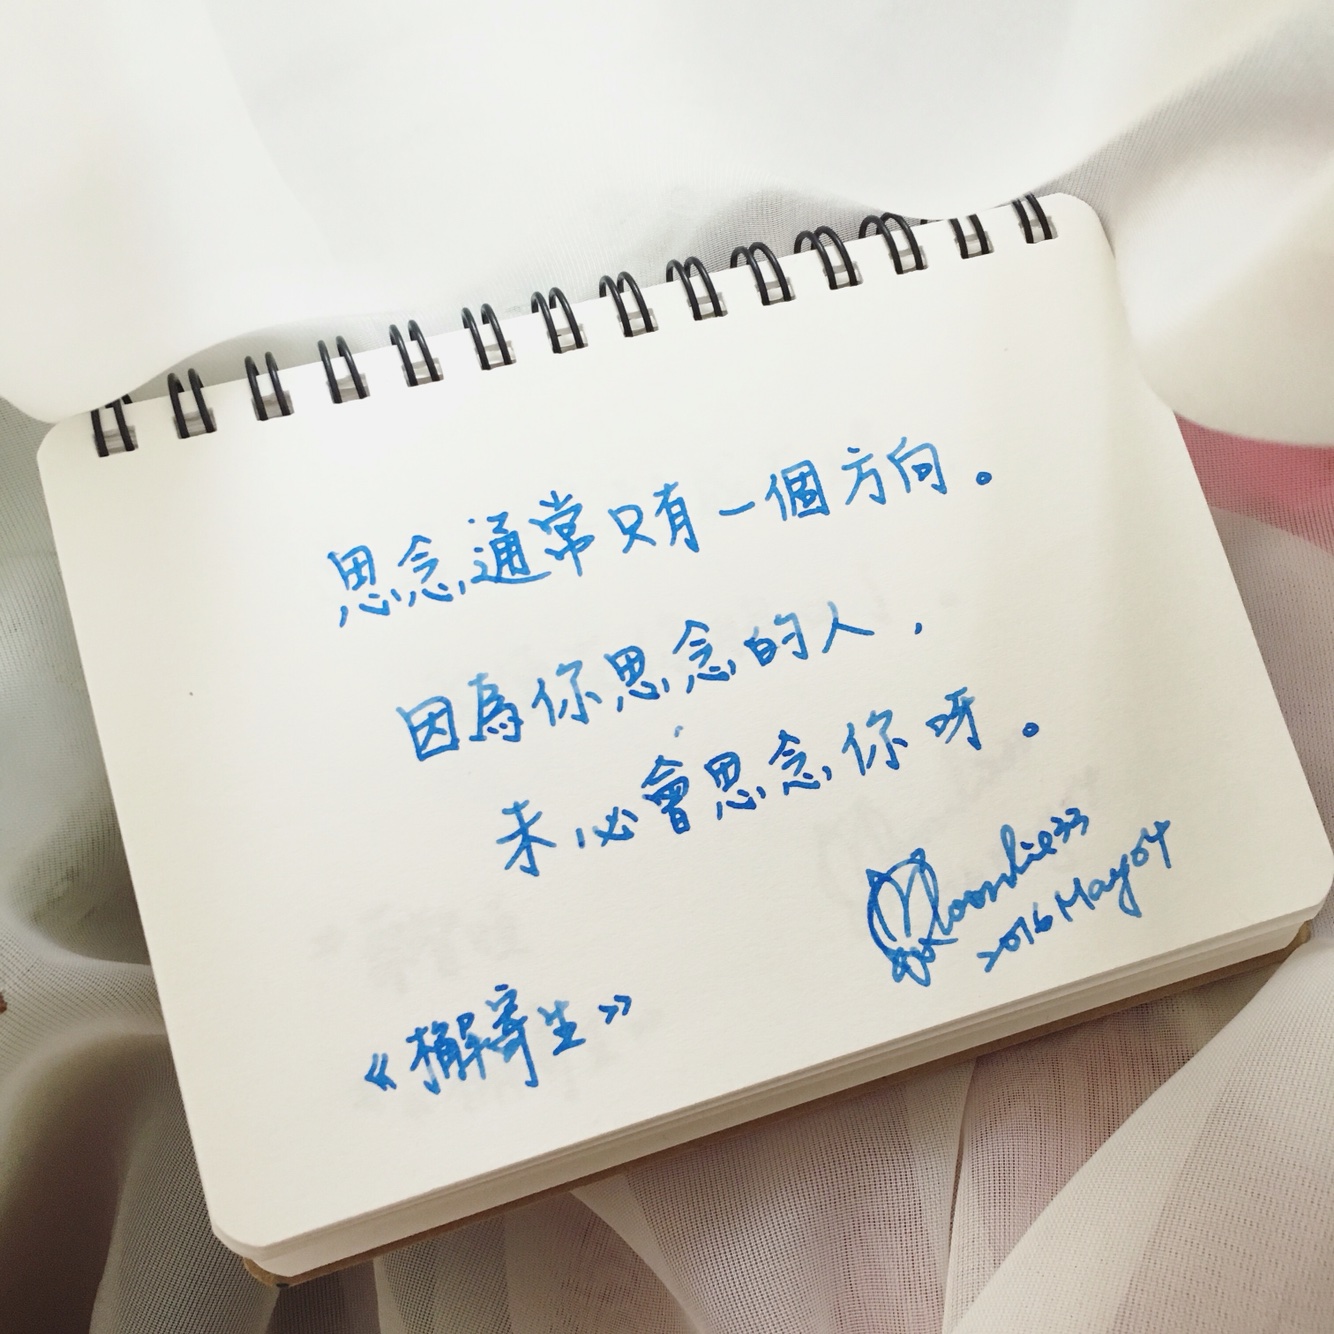 思念通常只有一個方向。
因為你思念的人，
未必會思念你呀。
2016 May 04
《檞寄生》